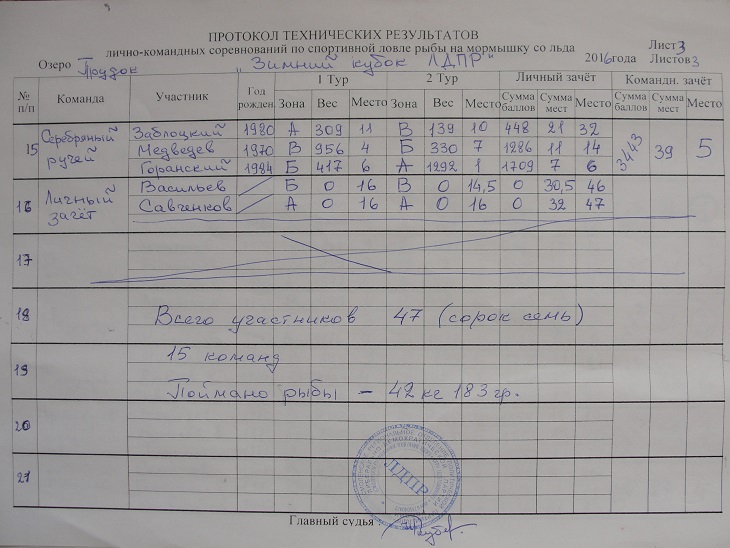 ПРОТОКОЛ ТЕХНИЧЕСКИХ РЕЗУЛЬТАТОВ
лично-командных соревнований по спортивной ловле рыбы на мормышку со льда
Лист 3
Озеро Прудок "Зимний кубок ЛДПР" 2016года Листов 3
№ п/п Команда Участник Год рожден. 1 Тур 2 Тур Личный зачёт Командн. зачёт
Зона Вес Место Зона Вес Место Сумма баллов Сумма мест Место Сумма баллов Сумма мест Место
15 Серебряный ручей Заблоцкий 1980 А 309 11 В 139 10 448 21 32 3443 39 5
Медведев 1970 В 956 4 Б 330 7 1286 11 14
Горанский 1984 Б 417 6 А 1292 1 1709 7 6
16 Личный зачёт Васильев Б 0 16 В 0 14,5 0 30,5 46
Савченков А 0 16 А 0 16 0 32 47
17
18 Всего участников 47 (сорок семь)
15 команд
19
Поймано рыбы - 42 кг 183 гр.
20
21
ЛДПР
Главный судья